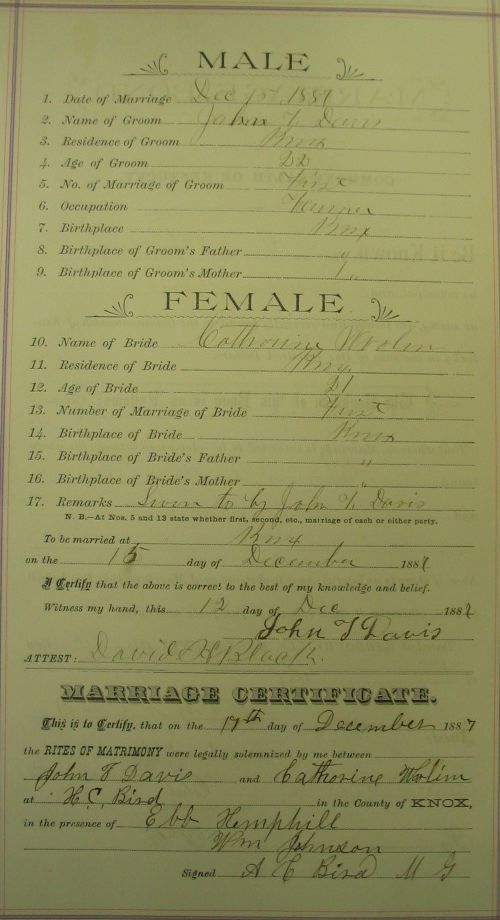 MALE
1. Date of Marriage Dec 15th, 1887
2. Name of Groom John T. Davis
3. Residence of Groom Knox
4. Age of Groom 22
5. No. of Marriage of Groom First
6. Occupation Farmer
7. Birthplace Knox
8. Birthplace of Groom's Father "
9. Birthplace of Groom's Mother "
FEMALE
10. Name of Bride Catherine
11. Residence of Bride Knox
12. Age of Bride 21
13. Number of Marriage of Bride First
14. Birthplace of Bride Knox
15. Birthplace of Bride's Father "
16. Birthplace of Bride's Mother "
17. Remarks Sworn to by John T. Davis
N. B.—At Nos. 5 and 13 state whether first, second, etc., marriage of each or either party.
To be married at Knox
on the 15 day of December 1887
I Certify that the above is correct to the best of my knowledge and belief.
Witness my hand, this 12 day of Dec 1887
John T Davis
ATTEST: David H Black.
MARRIAGE CERTIFICATE.
This is to Certify, that on the 17th day of December 1887
the RITES OF MATRIMONY were legally solemnized by me between
John T Davis and Catherine
at H. C. Bird in the County of KNOX,
in the presence of Ebb Hemphill
Wm Johnson
Signed A C Bird M G